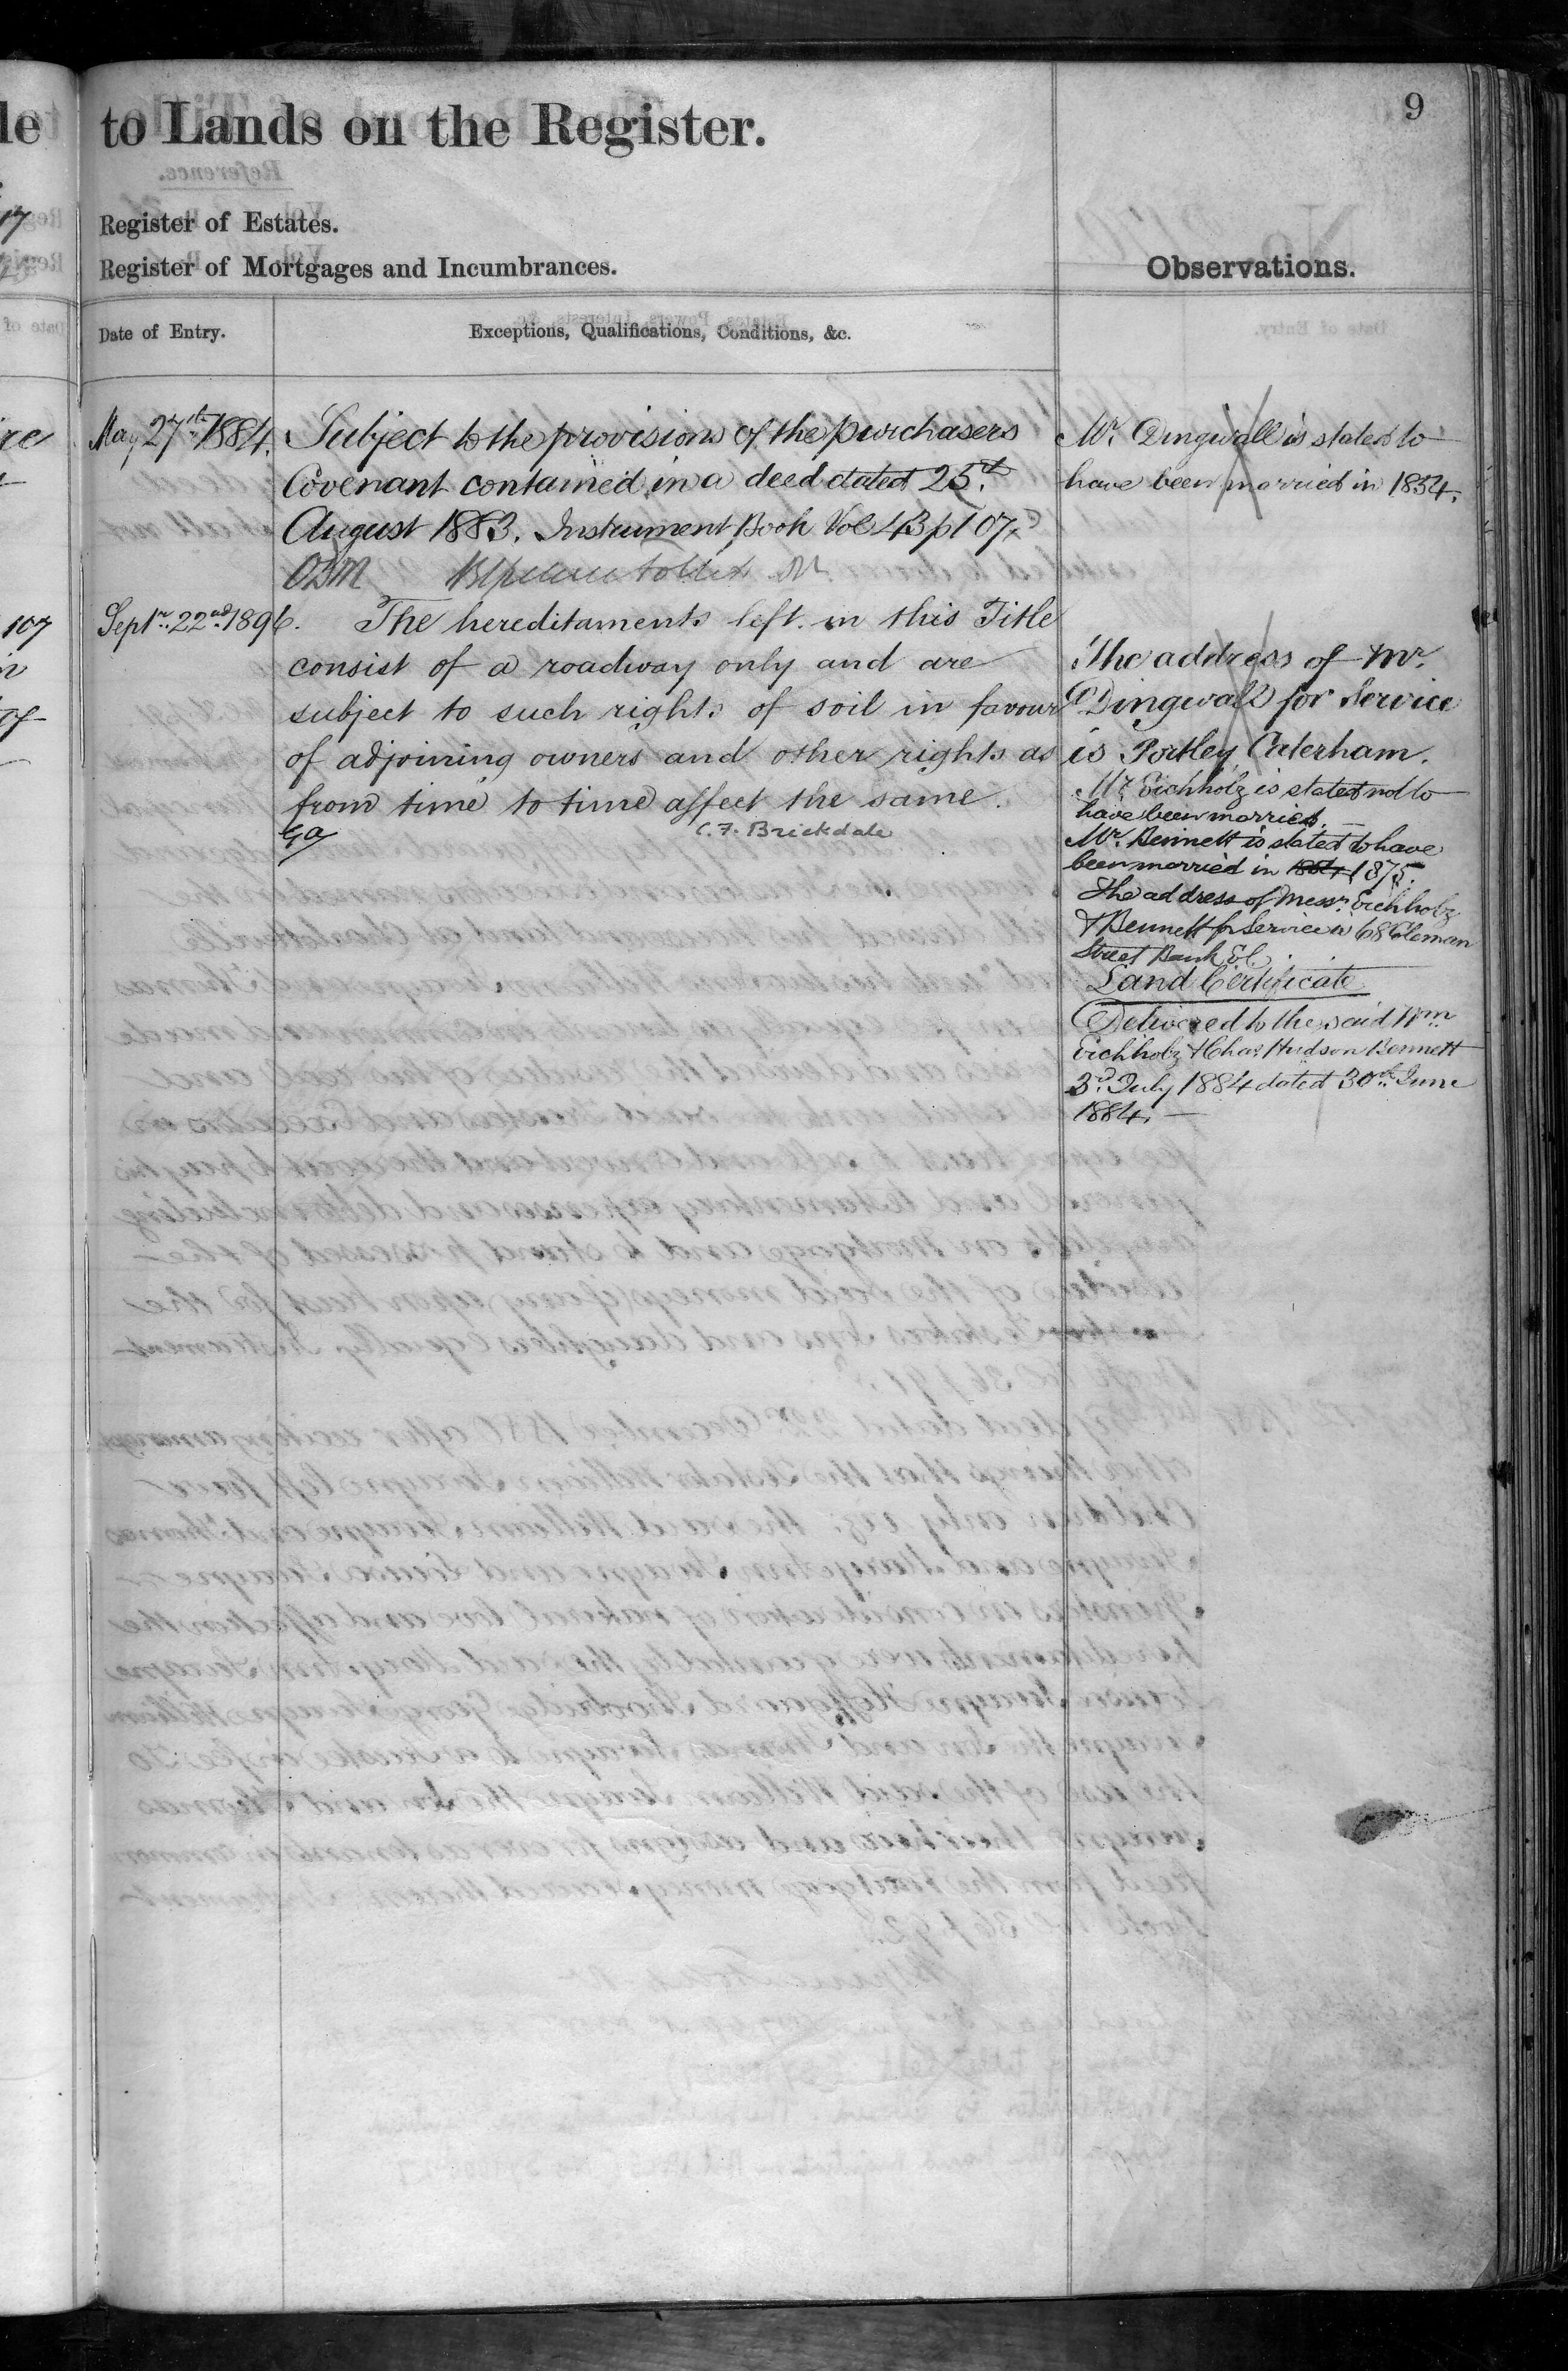 to Lands on the Register.
9
Register of Estates.
Register of Mortgages and Incumbrances.
Observations.
Date of Entry.
Exceptions, Qualifications, Conditions, &c.
May 27th 1884.
Subject to the provisions of the purchasers
Covenant contained in a deed dated 25th
August 1883. Instrument Book Vol 43 p 107.
Septr. 22nd 1896.
The hereditaments left in this Title
consist of a roadway only and are
subject to such rights of soil in favour
of adjoining owners and other rights as
from time to time affect the same.
C. F. Brickdale
Mr. Dingwall is stated to
have been married in 1854.
The address of Mr.
Dingwall for Service
is Portley, Caterham.
Mr. Eichholz is stated not to
have been married.
Mr. Bennett is stated to have
been married in 1884 1875.
The address of Messrs. Eichholz
& Bennett for Service is 68 Coleman
Street Bank E.C.
Land Certificate
Delivered to the said Wm.
Eichholz & Chas. Hudson Bennett
3rd July 1884 dated 30th June
1884.